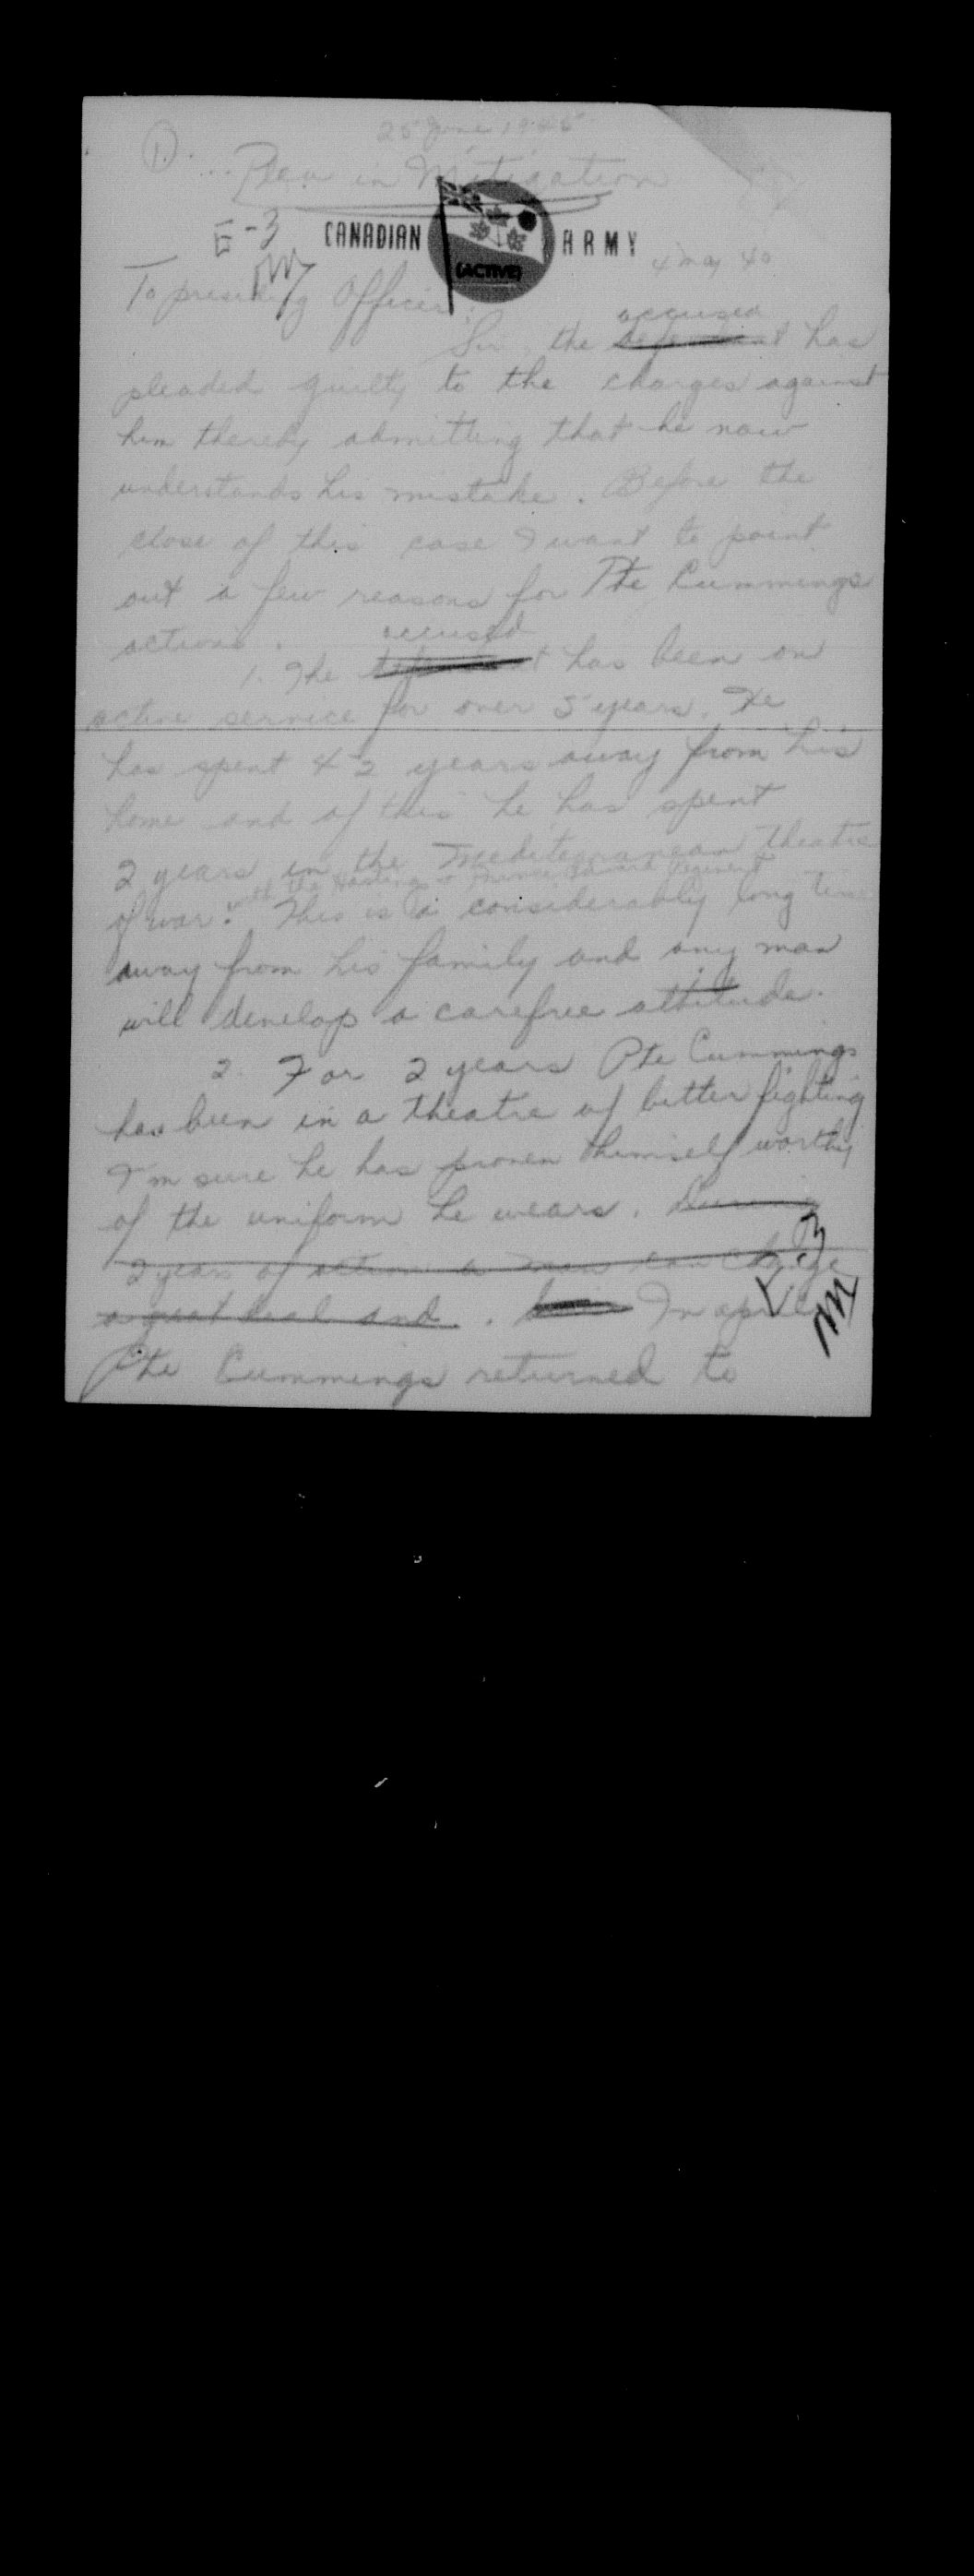 25 June 1945
1. Plea in Mitigation
E-3
CANADIAN (ACTIVE) ARMY
4 May 40
To presiding Officer:
accused
Sir, the defendant has
pleaded guilty to the charges against
him thereby admitting that he now
understands his mistake. Before the
close of this case I want to point
out a few reasons for Pte Cummings
actions.
accused
1. The defendant has been on
active service for over 5 years. He
has spent 4½ years away from his
home and of this he has spent
2 years in the Mediterranean theatre
with the Hastings & Prince Edward Regiment
of war. This is a considerably long time
away from his family and any man
will develop a carefree attitude.
2. For 2 years Pte Cummings
has been in a theatre of bitter fighting
I'm sure he has proven himself worthy
of the uniform he wears. During
2 years of action a man can change
a great deal and . In april
Pte Cummings returned to